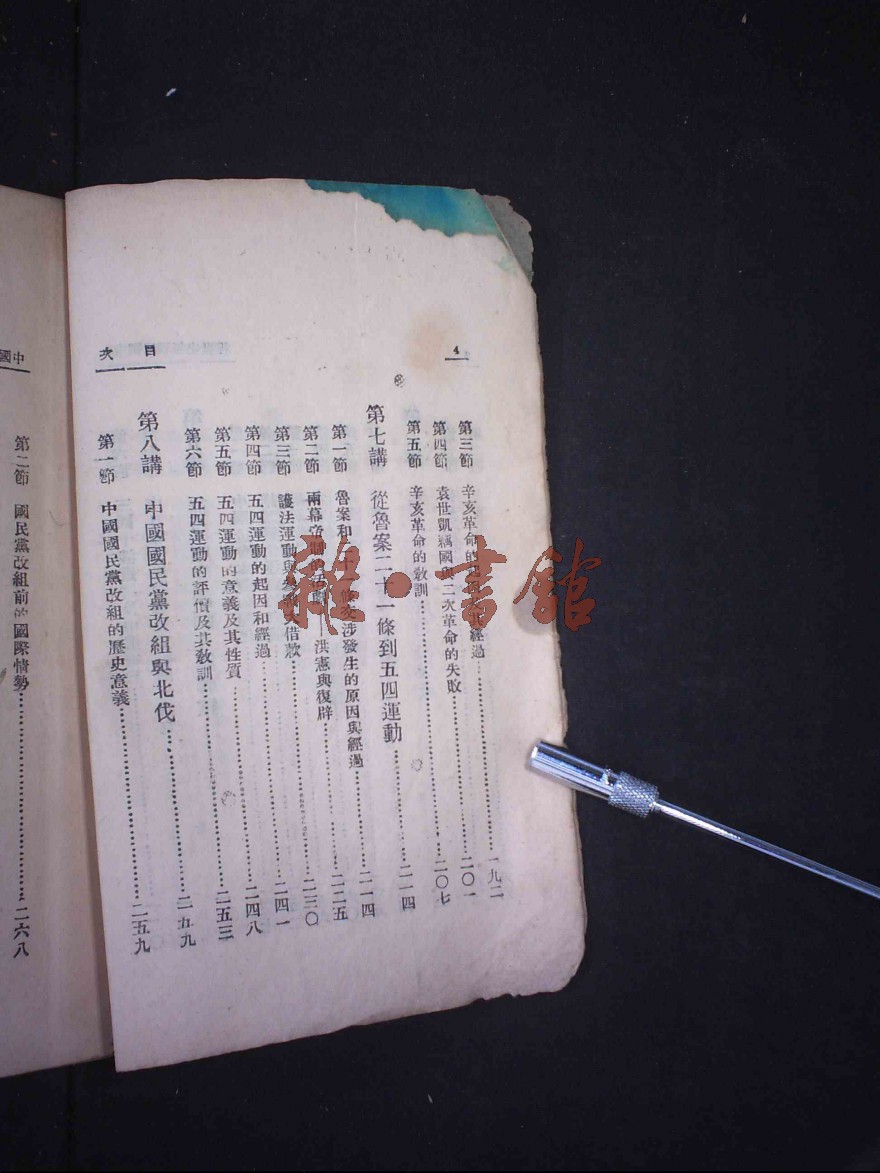 4
目次
第三節 辛亥革命的 其經過 一九二
第四節 袁世凱竊國與二次革命的失敗 二〇一
第五節 辛亥革命的教訓 二〇七
第七講 從魯案二十一條到五四運動 二一四
第一節 魯案和二十一條交涉發生的原因與經過 二一四
第二節 兩幕帝制的活劇——洪憲與復辟 二二五
第三節 護法運動與 借款 二三〇
第四節 五四運動的起因和經過 二四一
第五節 五四運動的意義及其性質 二四八
第六節 五四運動的評價及其教訓 二五三
第八講 中國國民黨改組與北伐 二五九
第一節 中國國民黨改組的歷史意義 二五九
中國
第二節 國民黨改組前的國際情勢 二六八
雜·書館